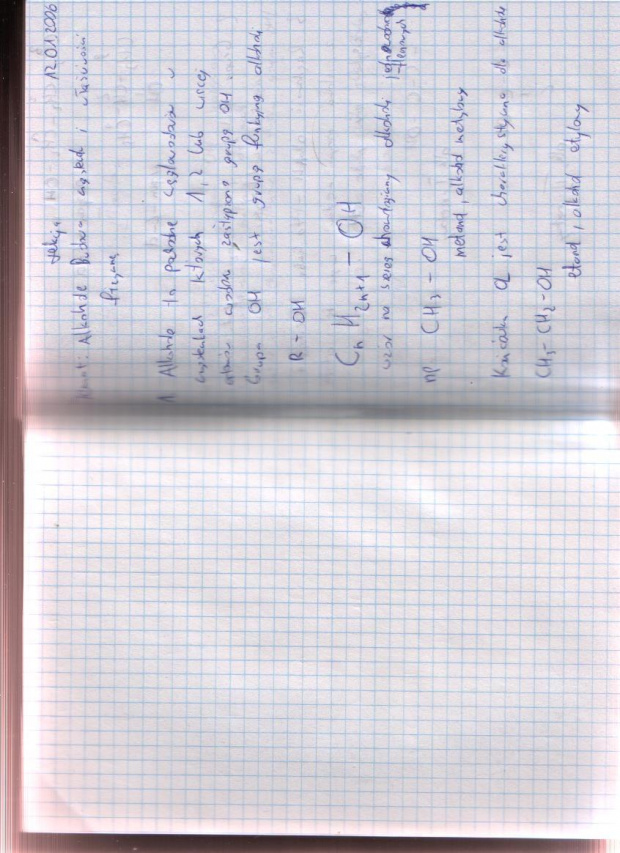 Lekcja 12.01.2006
Temat: Alkohole Budowa cząsteczki i właściwości
fizyczne
1. Alkohole to pochodne węglowodorów w
cząsteczkach których 1, 2 lub więcej
atomów wodoru zastąpiono grupą OH
Grupa OH jest grupą funkcyjną alkoholi
R - OH
CnH2n+1 - OH
wzór na szereg alkoholi
np CH3 - OH
metanol, alkohol metylowy
Końcówka OL jest charakterystyczna dla alkoholi
CH3 - CH2 - OH
etanol, alkohol etylowy